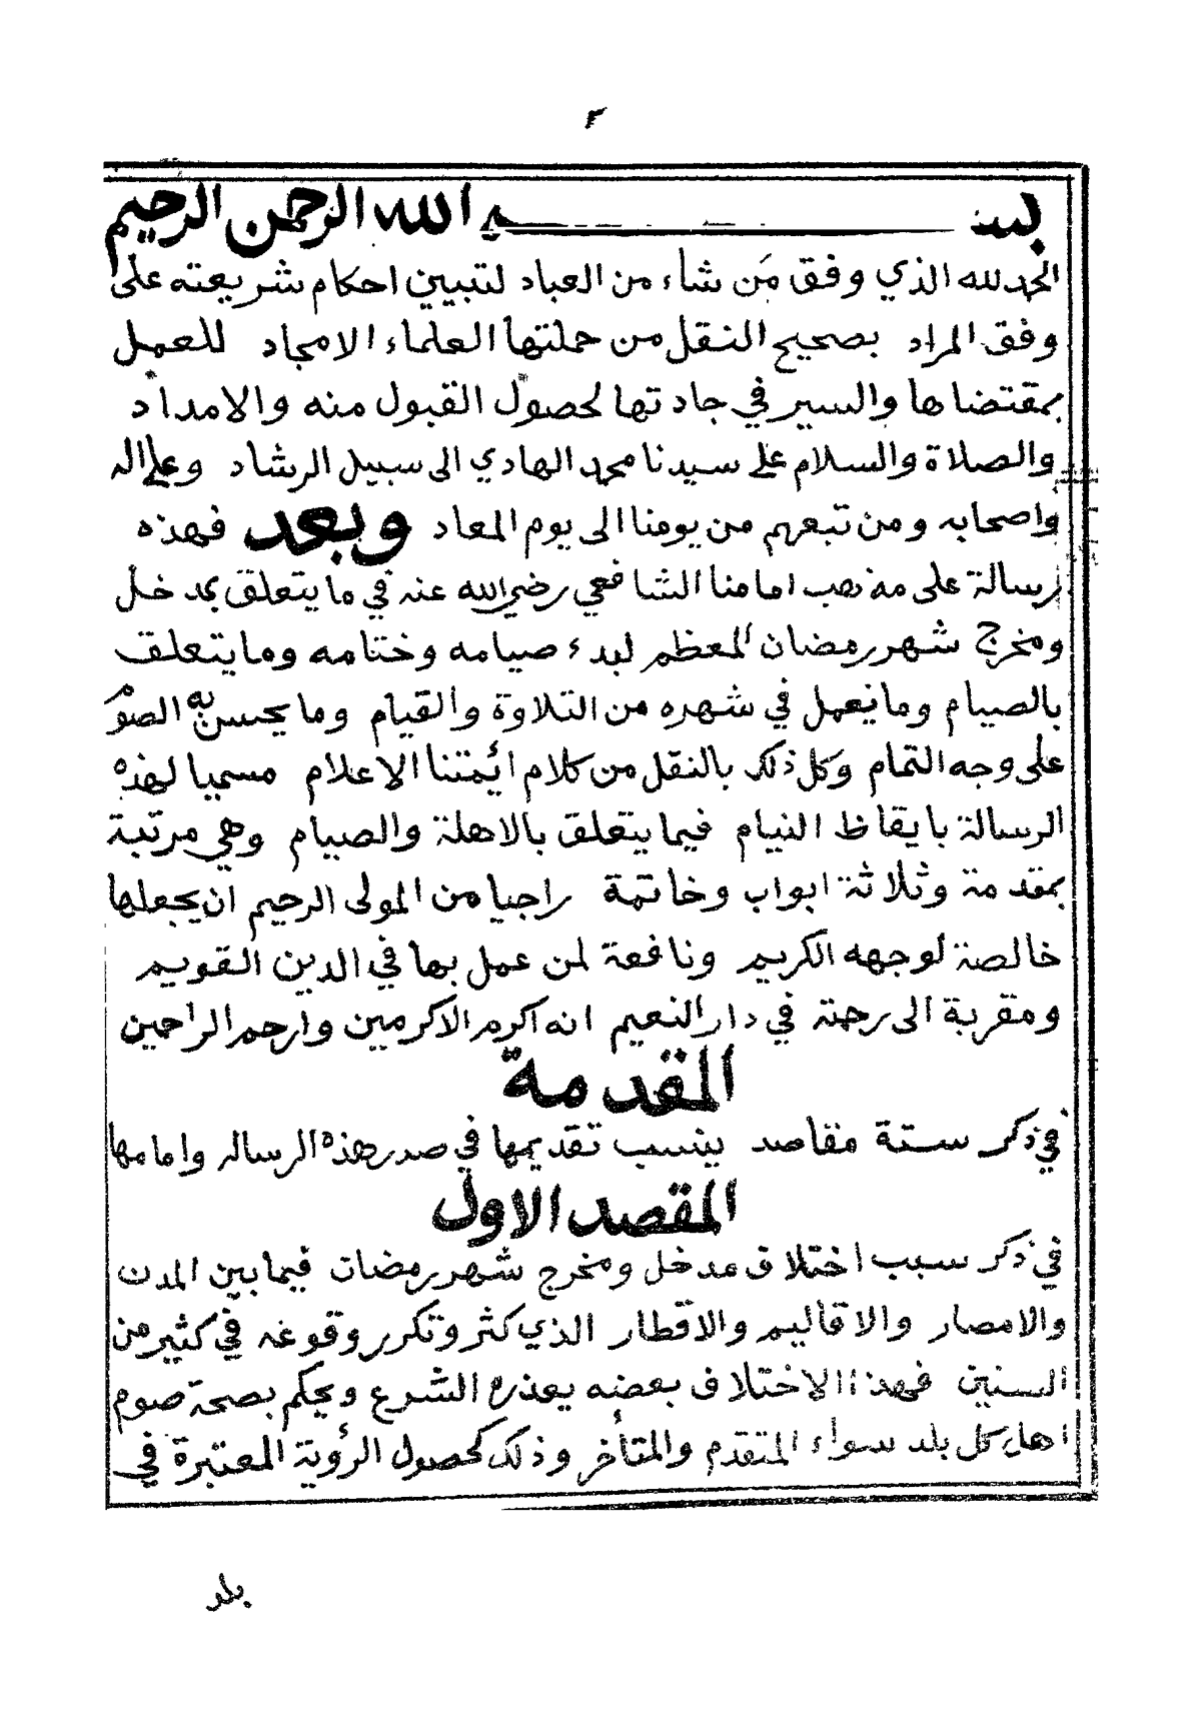 ٢
بسم الله الرحمن الرحيم
الحمد لله الذي وفق مَن شاء من العباد لتبيين احكام شريعته على
وفق المراد بصحيح النقل من حملتها العلماء الامجاد للعمل
بمقتضاها والسير في جادتها لحصول القبول منه والامداد
والصلاة والسلام على سيدنا محمد الهادي الى سبيل الرشاد وعلى اله
واصحابه ومن تبعهم من يومنا الى يوم المعاد وبعد فهذه
رسالة على مذهب امامنا الشافعي رضي الله عنه في ما يتعلق بمدخل
ومخرج شهر رمضان المعظم لبدء صيامه وختامه وما يتعلق
بالصيام وما يفعل في شهره من التلاوة والقيام وما يحسن به الصوم
على وجه التمام وكل ذلك بالنقل من كلام ائمتنا الاعلام مسميا لهذه
الرسالة بايقاظ النيام فيما يتعلق بالاهلة والصيام وهي مرتبة
بمقدمة وثلاثة ابواب وخاتمة راجيا من المولى الرحيم ان يجعلها
خالصة لوجهه الكريم ونافعة لمن عمل بها في الدين القويم
ومقربة الى رحمته في دار النعيم انه اكرم الاكرمين وارحم الراحمين
المقدمة
في ذكر ستة مقاصد ينسب تقديمها في صدر هذه الرساله وامامها
المقصد الاول
في ذكر سبب اختلاف مدخل ومخرج شهر رمضان فيما بين المدن
والامصار والاقاليم والاقطار الذي كثر وتكرر وقوعه في كثير من
السنين فهذا الاختلاف بعضه يعذره الشرع ويحكم بصحة صوم
اهل كل بلد سواء المتقدم والمتأخر وذلك كحصول الرؤية المعتبرة في
بلد